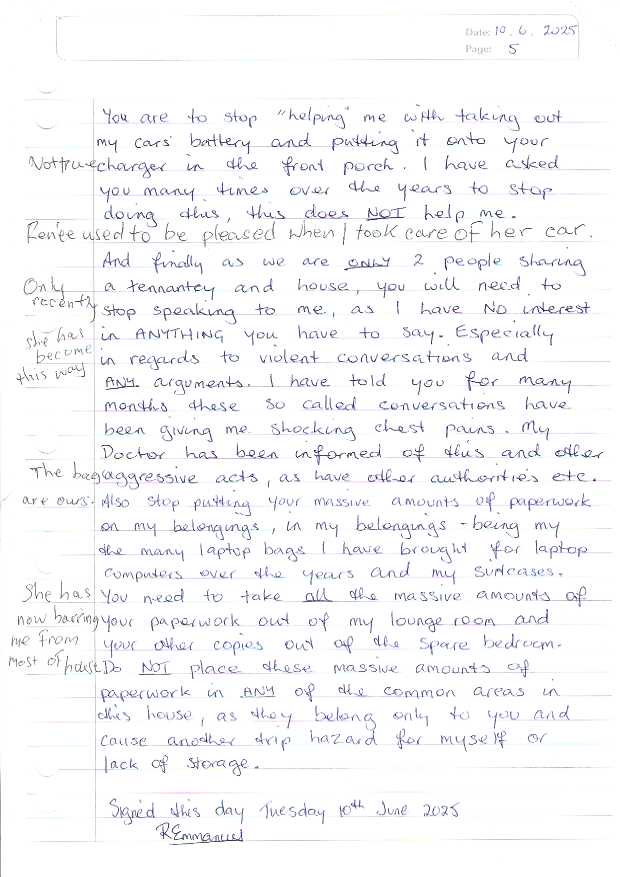 Date: 10. 6. 2025
Page: 5
You are to stop "helping" me with taking out
my cars' battery and putting it onto your
Not true charger in the front porch. I have asked
you many times over the years to stop
doing this, this does NOT help me.
Renée used to be pleased when I took care of her car.
And finally as we are ONLY 2 people sharing
Only a tennantey and house, you will need to
recently stop speaking to me, as I have NO interest
she has in ANYTHING you have to say. Especially
become in regards to violent conversations and
this way ANY arguments. I have told you for many
months these so called conversations have
been giving me shocking chest pains. My
Doctor has been informed of this and other
The bags aggressive acts, as have other authorities etc.
are ours. Also stop putting your massive amounts of paperwork
on my belongings, in my belongings - being my
the many laptop bags I have brought for laptop
computers over the years and my suitcases.
She has You need to take all the massive amounts of
now barring your paperwork out of my lounge room and
me from your other copies out of the spare bedroom.
most of house Do NOT place these massive amounts of
paperwork in ANY of the common areas in
this house, as they belong only to you and
cause another trip hazard for myself or
lack of storage.
Signed this day Tuesday 10th June 2025
REmmanuel